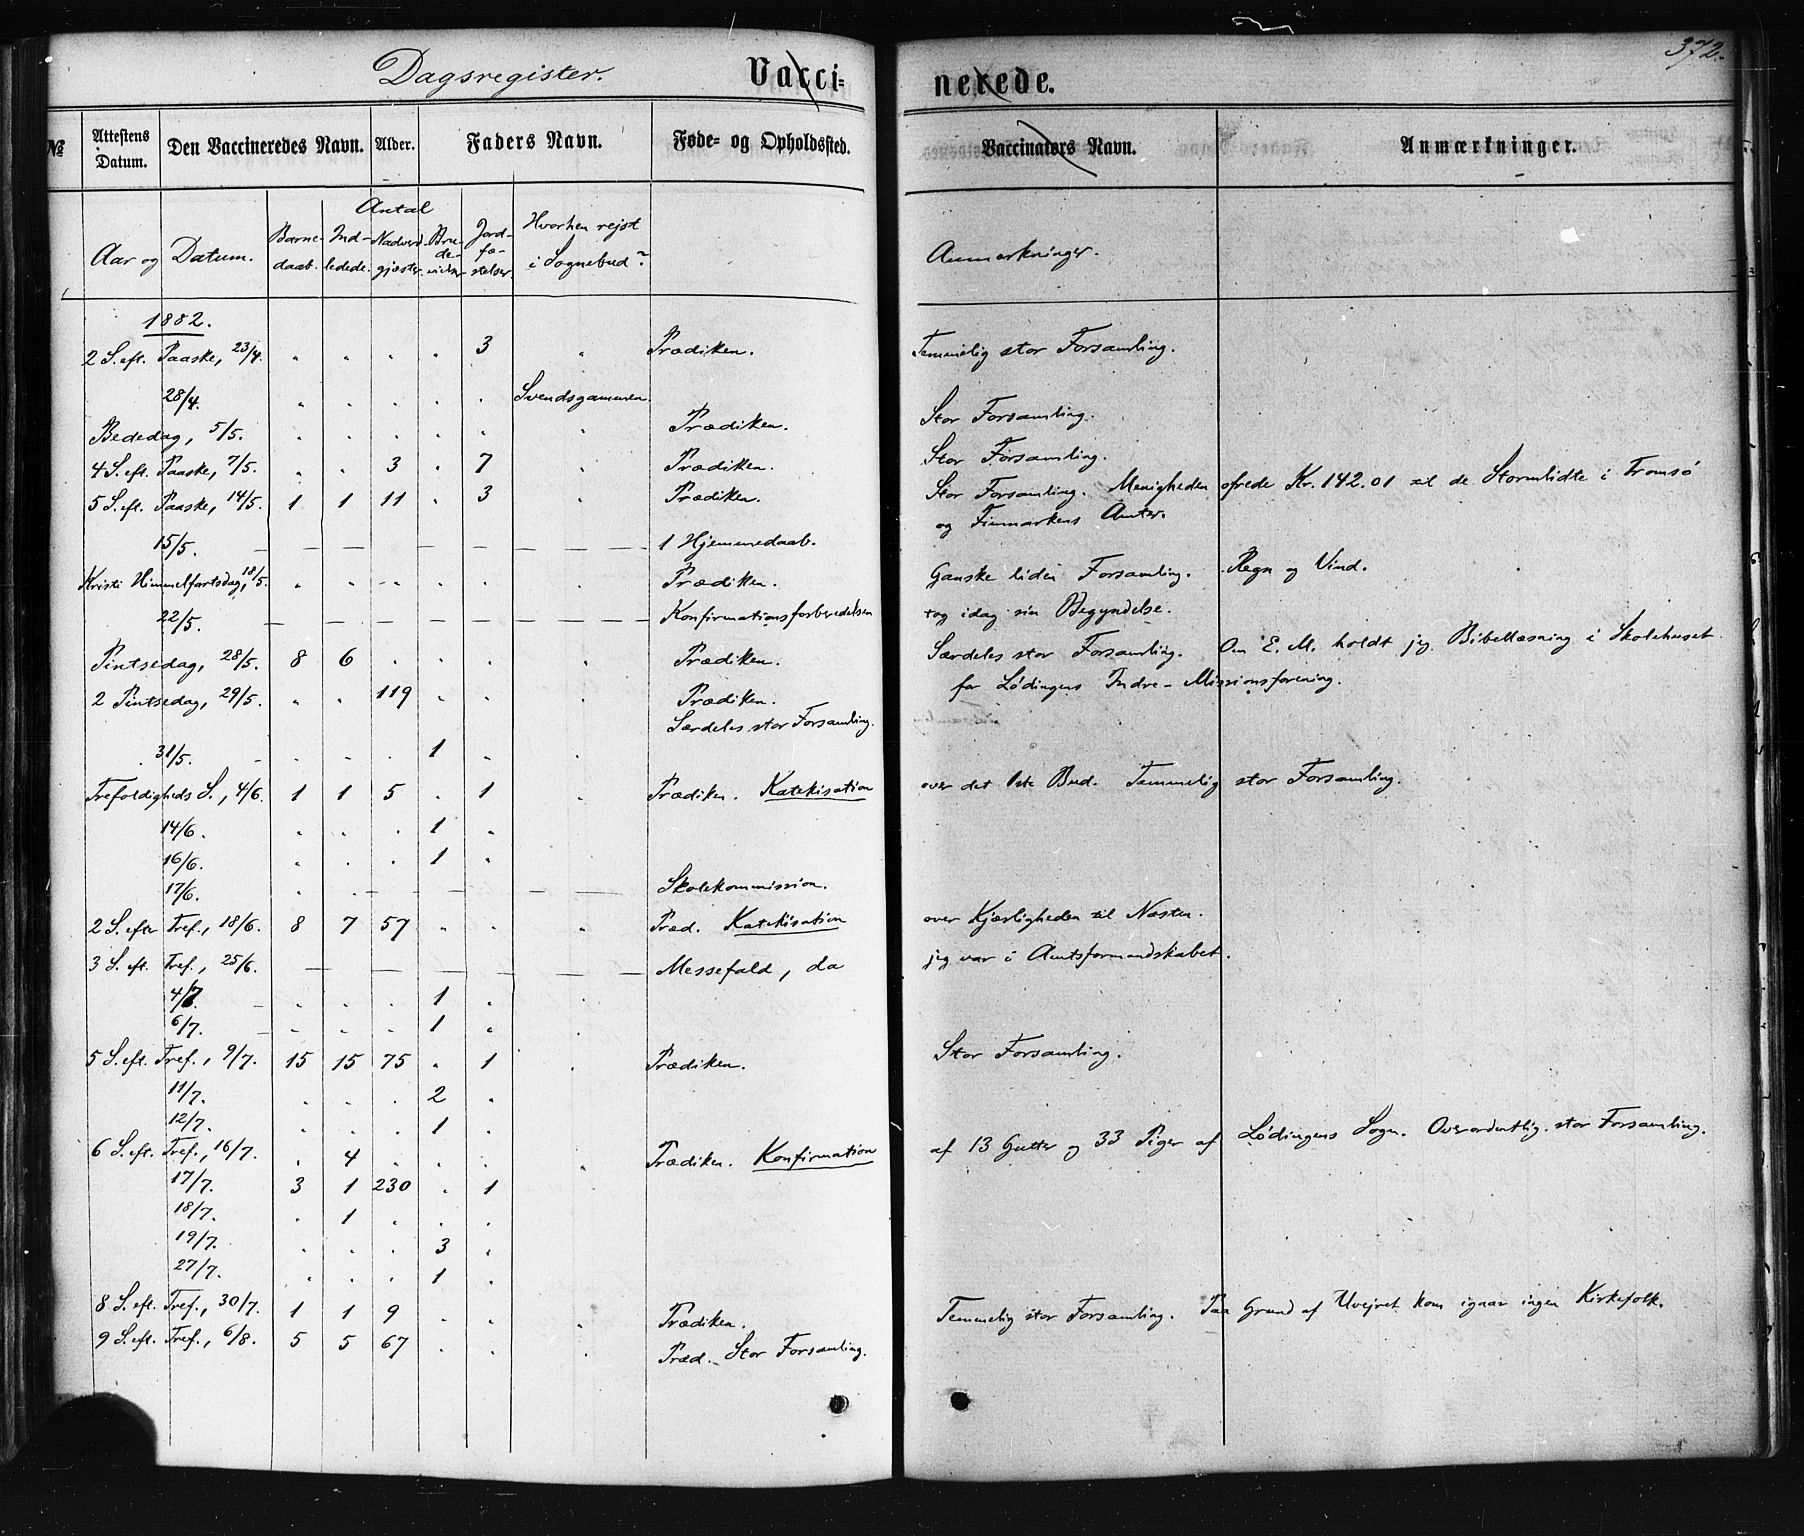 372.
Dagsregister. Vacci= nerede.
№ Attestens Datum. Den Vaccineredes Navn. Alder. Faders Navn. Føde= og Opholdssted. Vaccinators Navn. Anmærkninger.
Aar og Datum. Antal Barnedaab. Indledede. Nadverdgjæster. Brudevielser. Jordfæstelser. Hvorhen rejst i Sognebud? Anmærkninger.
1882.
2 S. eft. Paaske, 23/4. " " " " 3 " Prædiken. Temmelig stor Forsamling.
28/4. " " " " " Svendsgammen
Bededag, 5/5. " " " " " " Prædiken. Stor Forsamling.
4 S. eft. Paaske, 7/5. " " 3 " 7 " Prædiken. Stor Forsamling.
5 S. eft. Paaske, 14/5. 1 1 11 " 3 Prædiken. Stor Forsamling. Menigheden ofrede Kr. 142.01 til de Stormlidte i Tromsø
og Finmarkens Amter.
15/5. — — — — — — 1 Hjemmedaab.
Kristi Himmelfartsdag, 18/5. " " " " " " Prædiken. Ganske liden Forsamling. Regn og Vind.
22/5. — — — — — — Konfirmationsforberedelsen tog idag sin Begyndelse.
Pintsedag, 28/5. 8 6 " " " " Prædiken. Særdeles stor Forsamling. Om E. M. holdt jeg Bibellæsning i Skolehuset
for Lødingens Indre-Missionsforening.
2 Pintsedag, 29/5. " " 119 " " " Prædiken.
Særdeles stor Forsamling.
31/5. " " " 1 " "
Trefoldigheds S., 4/6. 1 1 5 " 1 Prædiken. Katekisation over det 1ste Bud. Temmelig stor Forsamling.
14/6. " " " 1 "
16/6. " " " 1 "
17/6. " " — — — — Skolekommission.
2 S. efter Tref., 18/6. 8 7 57 " " " Præd. Katekisation over Kjærligheden til Næsten.
3 S. eft. Tref., 25/6. — — — — — — Messefald, da jeg var i Amtsformandskabet.
4/7. " " " 1 " "
6/7. " " " 1 " "
5 S. eft. Tref., 9/7. 15 15 75 " 1 " Prædiken. Stor Forsamling.
11/7. " " " 2 "
12/7. " " " 1 "
6 S. eft. Tref., 16/7. " 4 " " " " Prædiken. Konfirmation af 13 Gutter og 33 Piger af Lødingens Sogn. Overordentlig stor Forsamling.
17/7. 3 1 230 " 1
18/7. " 1 " " "
19/7. " " " 3 "
27/7. " " " 1 "
8 S. eft. Tref., 30/7. 1 1 9 " " " Prædiken. Temmelig stor Forsamling. Paa Grund af Uvejret kom igaar ingen Kirkefolk.
9 S. eft. Tref., 6/8. 5 5 67 " " " Præd. - Stor Forsamling.